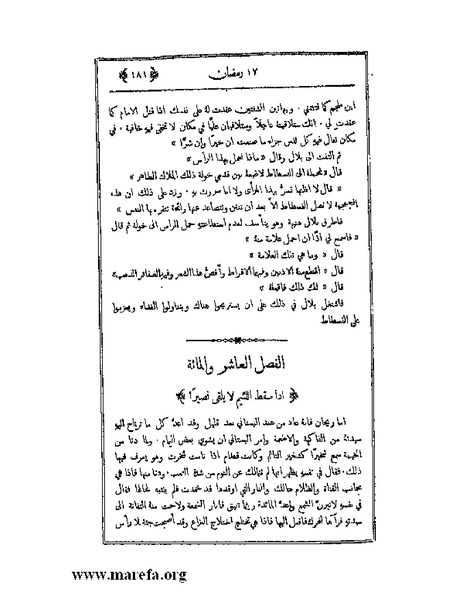 ١٧ رمضان
﴿ ١٨١ ﴾
ابن ملجم كما قتلتني . وبهاتين الشفتين عقدت له على نفسك اذا قتل الامام كما
عقدت لي . انك ستلاقينه عاجلاً وستلاقيان عليًا في مكان لا تخفى فيه خافية . في
مكان تعال فيه كل نفس جزاء ما صنعت ان خيرًا وإن شرًا »
ثم التفت الى بلال وقال « ماذا نعمل بهذا الرأس »
قال « نحمله الى الفسطاط لاضعه بين قدمي خولة ذلك الملاك الطاهر »
قال « لا اظنها تسرّ بهذا المرأى ولا انا سررت به . وزد على ذلك ان هذه
الجمجمة لا تصل الفسطاط الاّ بعد ان تنتن وتتصاعد عنها رائحة تنفر بها النفس »
فاطرق بلال هنيهة وهو يتأسف لعدم استطاعته حمل الرأس الى خولة ثم قال
« فاسمح لي اذًا ان احمل علامة منه »
قال « وما هي تلك العلامة »
قال « اقطع منه الاذنين وفيهما الاقراط وأقص هذا الشعر وفيه الضفائر الذهب »
قال « لك ذلك فاقطعه »
فاشتغل بلال في ذلك على ان يستريحوا هناك ويتناولوا الغذاء ويعزموا
على الفسطاط
الفصل العاشر والمائة
﴿ اذا سقط اللئيم لا يلقى نصيرًا ﴾
اما ريحان فانه عاد من عند البستاني بعد قليل وقد اعدّ كل ما ترتاح اليه
سيدته من الفاكهة والاطعمة وامر البستاني ان يشوي بعض اللحم . ولما دنا من
الخيمة سمع شخيرًا كشخير النائم وكانت قطام اذا نامت شخرت وهو يعرف فيها
ذلك . فقال في نفسه يظهر انها لم تتمالك عن النوم من شدة التعب . ودنا منها فاذا هي
بجانب القناة والظلام حالك والنار التي اوقدها قد خمدت فلم ينتبه لحالها فقال
في نفسه لانيرنّ الشمع وأعدّ المائدة ريثما تفيق فانار الشمعة ولاحت منه التفاتة الى
سيدته فرآها تتحرك فالتفت اليها فاذا هي تختلج اختلاج النزاع وقد أصبحت جثة بلا رأس
www.marefa.org